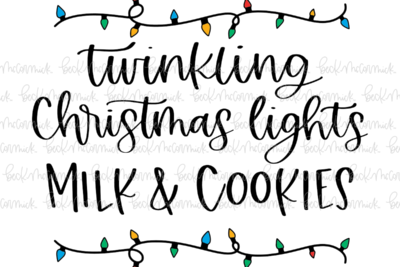 twinkling
Christmas lights
MILK & COOKIES